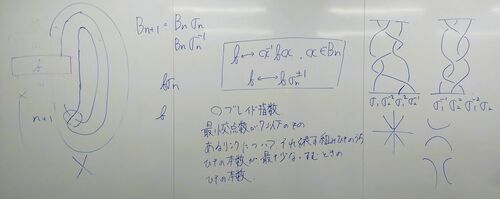 b
n+1
B_{n+1} = B_n σ_n
B_n σ_n^{-1}
bσ_n
b
b ↔ α^{-1}bα , α∈B_n
b ↔ bσ_n^{±1}
○ブレイド指数
最小交点数が7以下のもの
あるリンクについて、それを表す組みひものうち
ひもの本数が最も少なくすむときの
ひもの本数.
σ_1 σ_2^{-2} σ_1^2 σ_2^{-1}
σ_1^{-1} σ_2^2 σ_1^{-2} σ_2